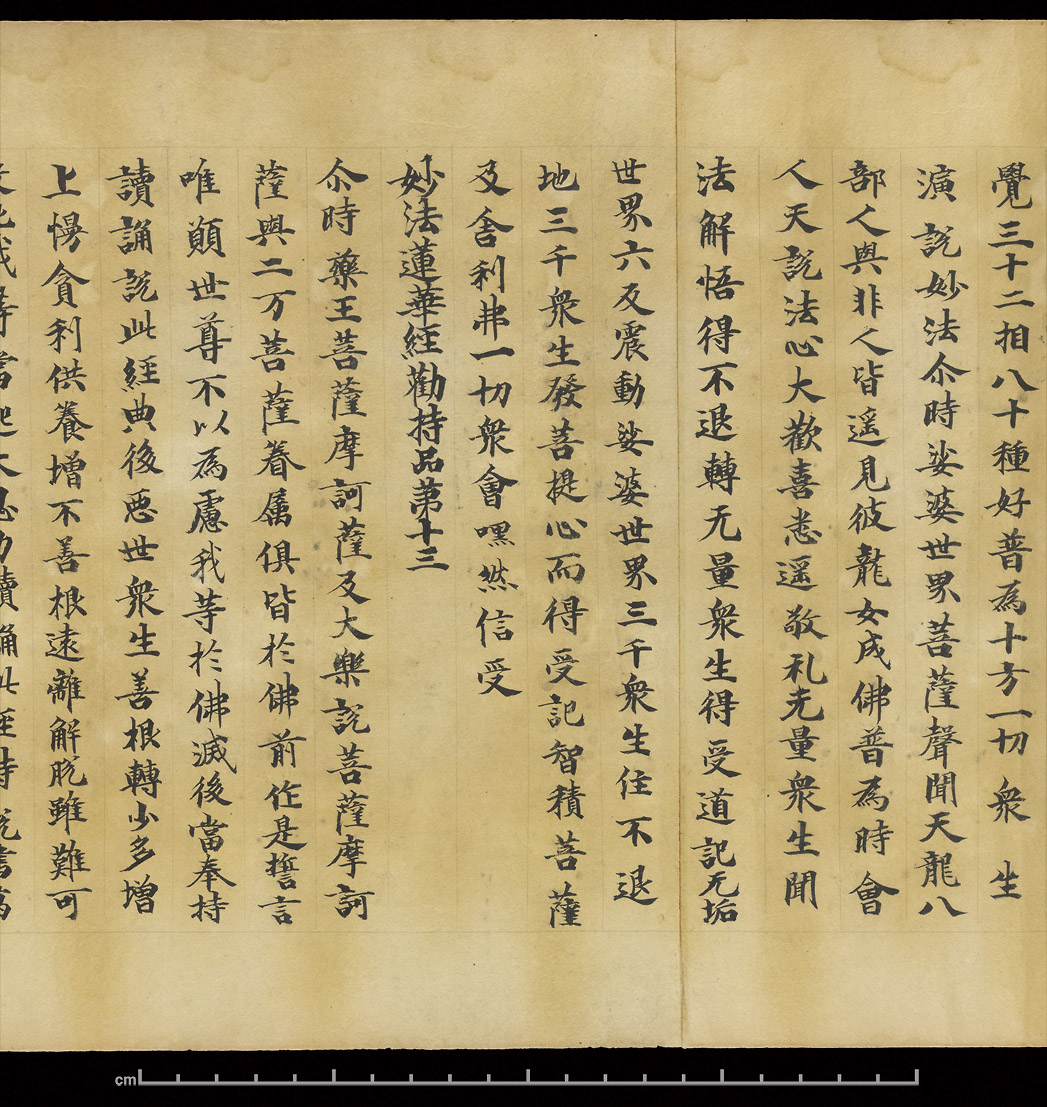 覺三十二相八十種好普為十方一切衆生
演說妙法尒時娑婆世界菩薩聲聞天龍八
部人與非人皆遥見彼龍女成佛普為時會
人天說法心大歡喜悉遥敬礼无量衆生聞
法解悟得不退轉无量衆生得受道記无垢
世界六反震動娑婆世界三千衆生住不退
地三千衆生發菩提心而得受記智積菩薩
及舍利弗一切衆會嘿然信受
妙法蓮華經勸持品第十三
尒時藥王菩薩摩訶薩及大樂說菩薩摩訶
薩與二万菩薩眷属俱皆於佛前作是誓言
唯願世尊不以為慮我等於佛滅後當奉持
讀誦說此經典後惡世衆生善根轉少多增
上慢貪利供養增不善根遠離解脫雖難可
cm